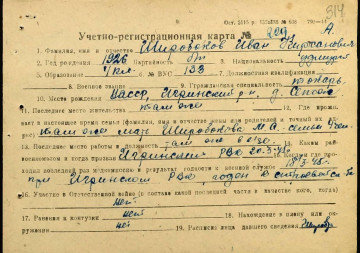 Учетно-регистрационная карта № 209
1. Фамилия, имя и отчество Широбоков Иван
2. Год рождения 1926 Партийность б/п 3. Национальность удмурт
5. Образование 4 кл. 6. № ВУС 133 7. Должностная квалификация
8. Военное звание 9. Гражданская специальность
10. Место рождения УАССР, Игринский р-н, д.
11. Последнее место жительства там же 12. Где прожи-
вает в настоящее время семья (фамилия, имя и отчество жены или родителей и точный ад-
рес) там же мать Широбокова М. А.
13. Последнее место работы и должность там же 14. Каким рай-
военкоматом и когда призван Игринским РВК 20.3.45 г. 15. Когда и где про-
ходил последний раз медкомиссию и результат годности к военной службе
при Игринском РВК, годен
16. Участие в Отечественной войне (в составе какой последней части и в качестве кого, когда)
нет
17. Ранения и контузии нет 18. Нахождение в плену или окру-
жении нет 19. Расписка лица давшего сведения